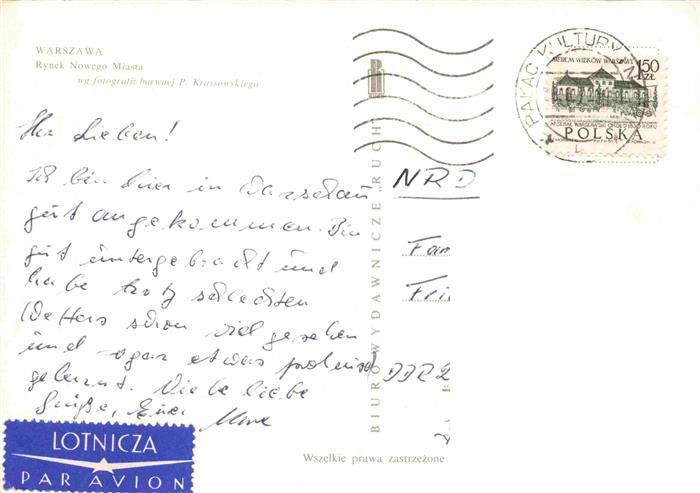 WARSZAWA
Rynek Nowego Miasta
wg fotografii barwnej P. Krassowskiego
Ihr Lieben!
Ich bin hier in Warschau
gut angekommen. Bin
gut untergebracht und
habe trotz schlechten
Wetters schon viel gesehen
und sogar etwas polnisch
gelernt. Viele liebe
Grüße, Euer Uwe
LOTNICZA
PAR AVION
BIURO WYDAWNICZE „RUCH”
PAŁAC KULTURY
SIEDEM WIEKÓW WARSZAWY
1,50
ZŁ
ARSENAŁ WARSZAWSKI OKOŁO 1830 ROKU
POLSKA
NRD
Fam
Fri
DDR
Wszelkie prawa zastrzeżone